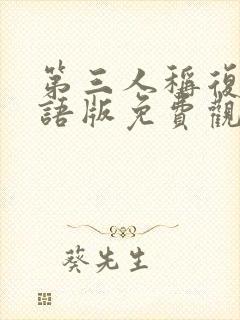 第三人稱復
語版免費觀
葵先生